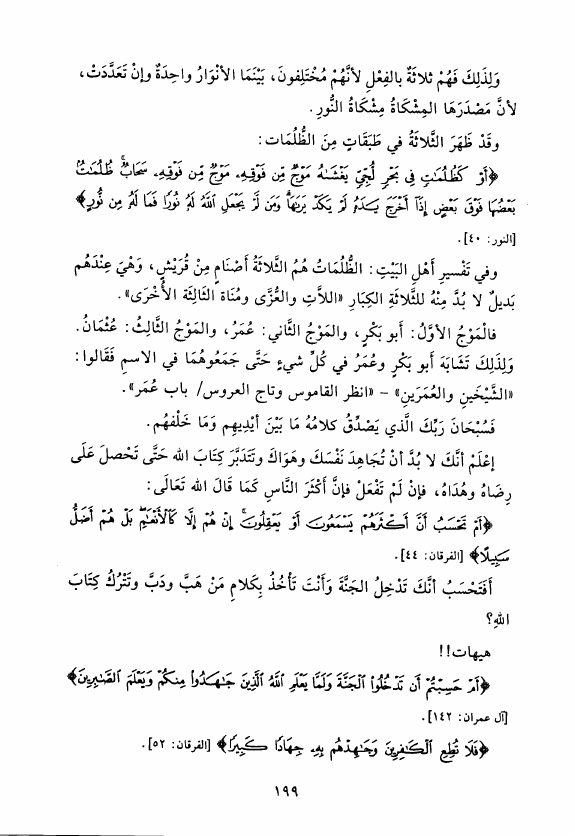 وَلِذَلِكَ فَهُمْ ثلاثَةٌ بالفِعْلِ لأنَّهُمْ مُخْتَلِفونَ، بَيْنَمَا الأنْوَارُ واحِدَةٌ وإنْ تَعَدَّدَتْ،
لأنَّ مَصْدَرَهَا المِشْكَاةُ مِشْكَاةُ النُّورِ.
وقَدْ ظَهَرَ الثَّلاثَةُ في طَبَقَاتٍ مِنَ الظُّلُمَات:
﴿أَوْ كَظُلُمَٰتٍ فِي بَحْرٍ لُّجِّيٍّ يَغْشَىٰهُ مَوْجٌ مِّن فَوْقِهِۦ مَوْجٌ مِّن فَوْقِهِۦ سَحَابٌۚ ظُلُمَٰتُۢ
بَعْضُهَا فَوْقَ بَعْضٍ إِذَآ أَخْرَجَ يَدَهُۥ لَمْ يَكَدْ يَرَىٰهَاۗ وَمَن لَّمْ يَجْعَلِ ٱللَّهُ لَهُۥ نُورًا فَمَا لَهُۥ مِن نُّورٍ﴾
[النور: ٤٠].
وفي تَفْسيرِ أهْلِ البَيْتِ: الظُّلُمَاتُ هُمُ الثَّلاثَةُ أصْنَامٍ مِنْ قُرَيْشٍ، وَهيَ عِنْدَهُم
بَديلٌ لا بُدَّ مِنْهُ للثَّلاثَةِ الكِبَارِ «اللاَّتِ والعُزَّى ومُنَاة الثالِثَة الأُخْرَى».
فالْمَوْجُ الأوَّلُ: أبو بَكْرٍ، والمَوْجُ الثَّاني: عُمَرُ، والمَوْجُ الثَّالِثُ: عُثْمَانُ.
وَلِذَلِكَ تَشَابَهَ أبو بَكْرٍ وعُمَرُ في كُلِّ شيءٍ حَتَّى جَمَعُوهُمَا في الاسمِ فَقَالوا:
«الشَّيْخَينِ والعُمَرَينِ» – «انظر القاموس وتاج العروس/ باب عُمَر».
فَسُبْحَانَ رَبِّكَ الَّذي يَصْدُقُ كلامُهُ مَا بَيْنَ أيْديهِم وَمَا خَلْفَهُم.
إعْلَمْ أنَّكَ لا بُدَّ أنْ تُجَاهِدَ نَفْسَكَ وهَوَاكَ وتَتَدَبَّر كِتَابَ الله حَتَّى تَحْصلَ عَلَى
رِضَاهُ وهُدَاهُ، فإنْ لَمْ تَفْعَلْ فإنَّ أكْثَرَ النَّاسِ كَمَا قَالَ الله تَعَالَى:
﴿أَمْ تَحْسَبُ أَنَّ أَكْثَرَهُمْ يَسْمَعُونَ أَوْ يَعْقِلُونَۚ إِنْ هُمْ إِلَّا كَٱلْأَنْعَٰمِۖ بَلْ هُمْ أَضَلُّ
سَبِيلًا﴾ [الفرقان: ٤٤].
أَفَتَحْسَبُ أنَّكَ تَدْخِلُ الجَنَّةَ وَأنْتَ تَأْخُذُ بِكَلامِ مَنْ هَبَّ ودَبَّ وتَتْرُكُ كِتَابَ
اللهِ؟
هيهات!!
﴿أَمْ حَسِبْتُمْ أَن تَدْخُلُوا۟ ٱلْجَنَّةَ وَلَمَّا يَعْلَمِ ٱللَّهُ ٱلَّذِينَ جَٰهَدُوا۟ مِنكُمْ وَيَعْلَمَ ٱلصَّٰبِرِينَ﴾
[آل عمران: ١٤٢].
﴿فَلَا تُطِعِ ٱلْكَٰفِرِينَ وَجَٰهِدْهُم بِهِۦ جِهَادًا كَبِيرًا﴾ [الفرقان: ٥٢].
١٩٩